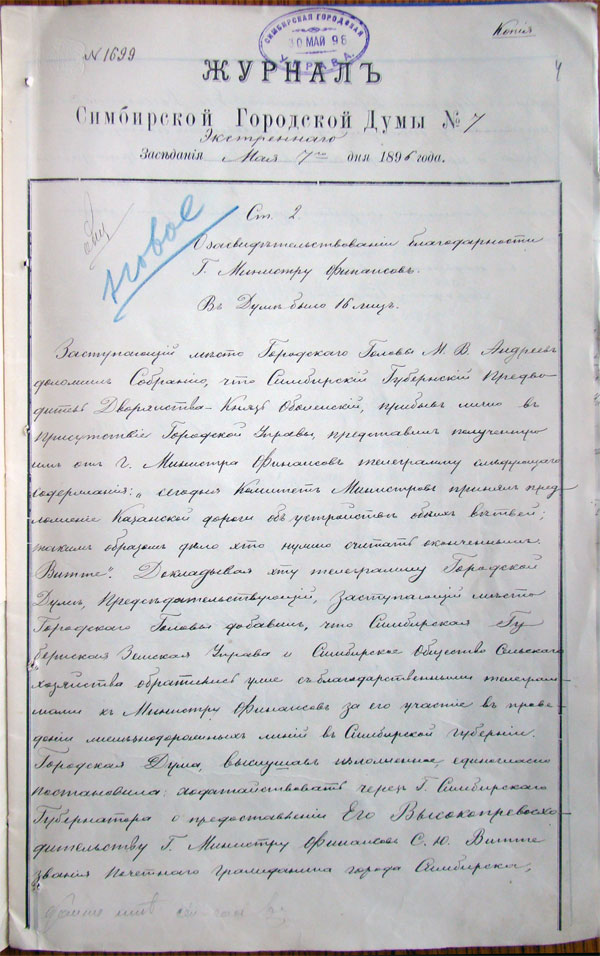 Копія
№ 1699
СИМБИРСКАЯ ГОРОДСКАЯ
30 МАЙ 96
УПРАВА.
4
ЖУРНАЛЪ
Симбирской Городской Думы № 7
Экстреннаго
Засѣданія Мая 7го дня 1896 года.
новое
Ст. 2.
О засвидѣтельствованіи благодарности
Г. Министру Финансовъ.
Въ Думѣ было 16 лицъ.
Заступающій мѣсто Городскаго Головы М. В. Андреевъ
доложилъ Собранію, что Симбирскій Губернскій Предво-
дитель Дворянства – Князь Оболенскій, прибывъ лично въ
присутствіе Городской Управы, представилъ полученную
имъ отъ г. Министра Финансовъ телеграмму слѣдующаго
содержанія: „сегодня Комитетъ Министровъ принялъ пред-
ложеніе Казанской дороги объ устройствѣ обѣихъ вѣтвей;
такимъ образомъ дѣло это нужно считать оконченнымъ.
Витте“. Докладывая эту телеграмму Городской
Думѣ, Предсѣдательствующій, Заступающій мѣсто
Городскаго Головы добавилъ, что Симбирская Гу-
бернская Земская Управа и Симбирское Общество Сельскаго
хозяйства обратились уже съ благодарственными телеграм-
мами къ Министру Финансовъ за его участіе въ прове-
деніи желѣзнодорожныхъ линій въ Симбирской губерніи.
Городская Дума, выслушавъ изложенное, единогласно
постановила: ходатайствовать черезъ Г. Симбирскаго
Губернатора о предоставленіи Его Высокопревосхо-
дительству Г. Министру Финансовъ С. Ю. Витте
званія Почетнаго Гражданина города Симбирска;